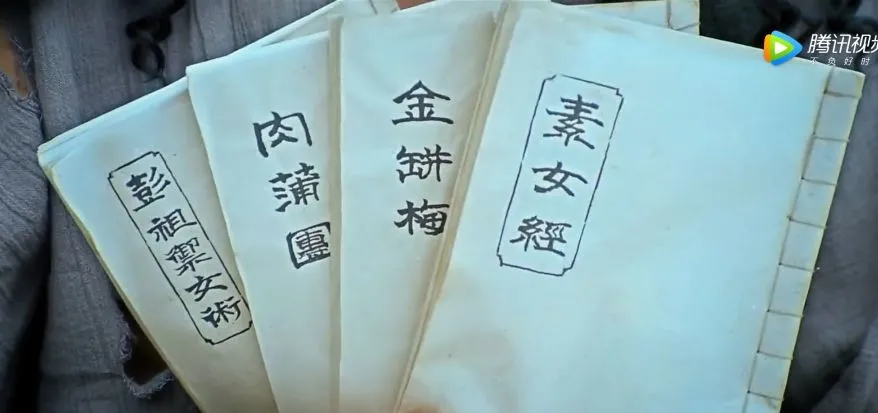 彭祖禦女術
肉蒲團
金缾梅
素女經
腾讯视频
不负好时